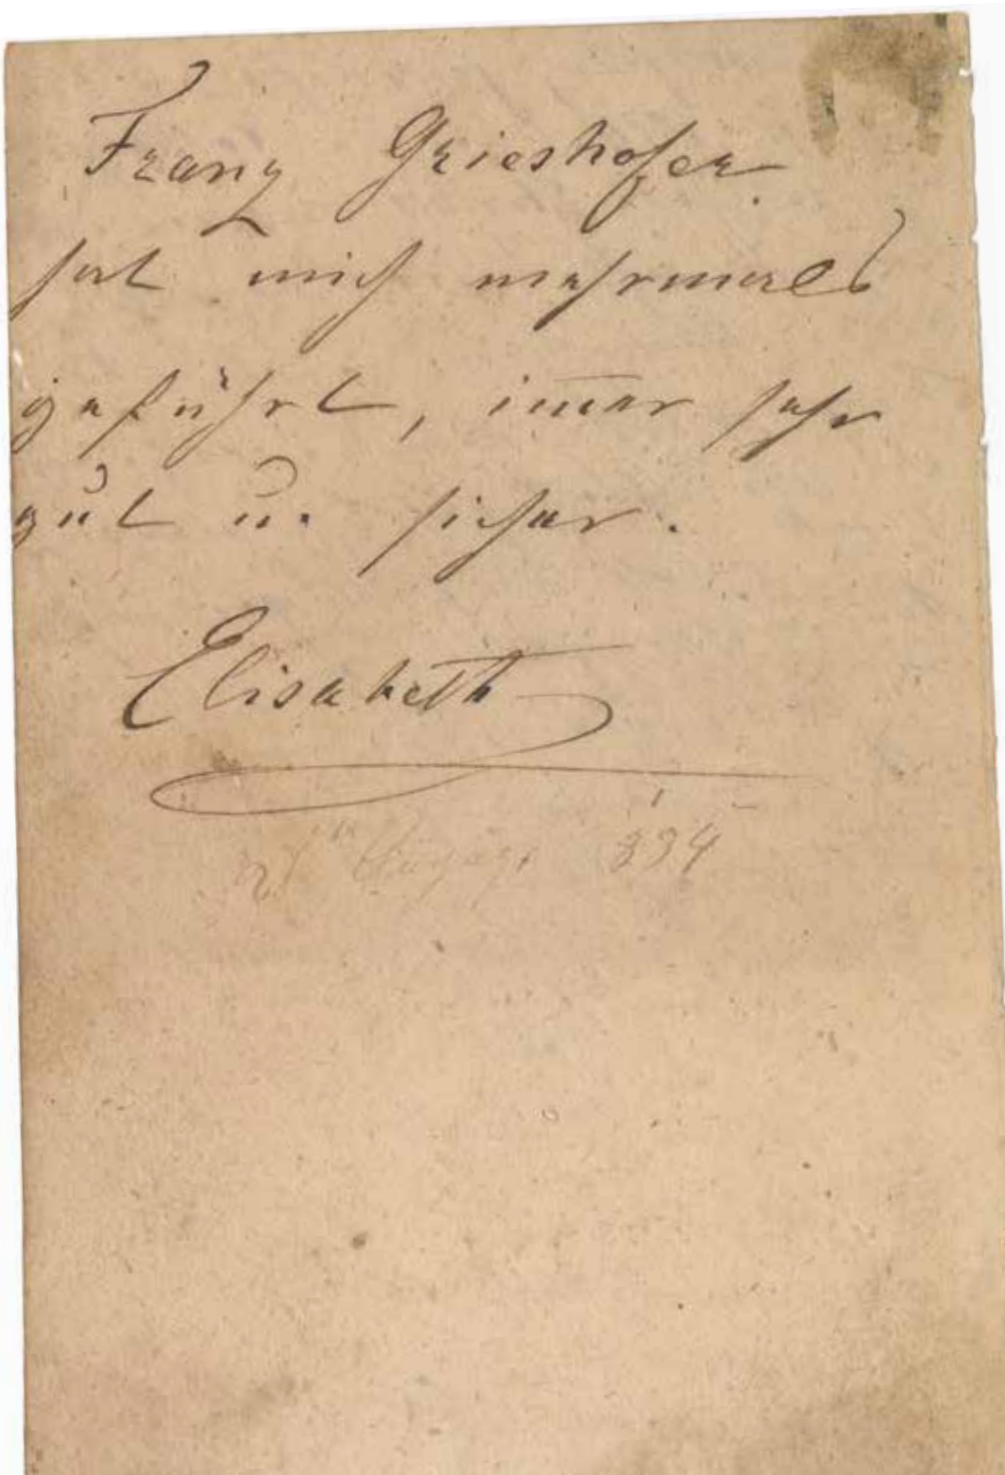 Franz Grieshofer
hat mich mehrmals
geführt, im̅er sehr
gut u. sicher.
Elisabeth
August